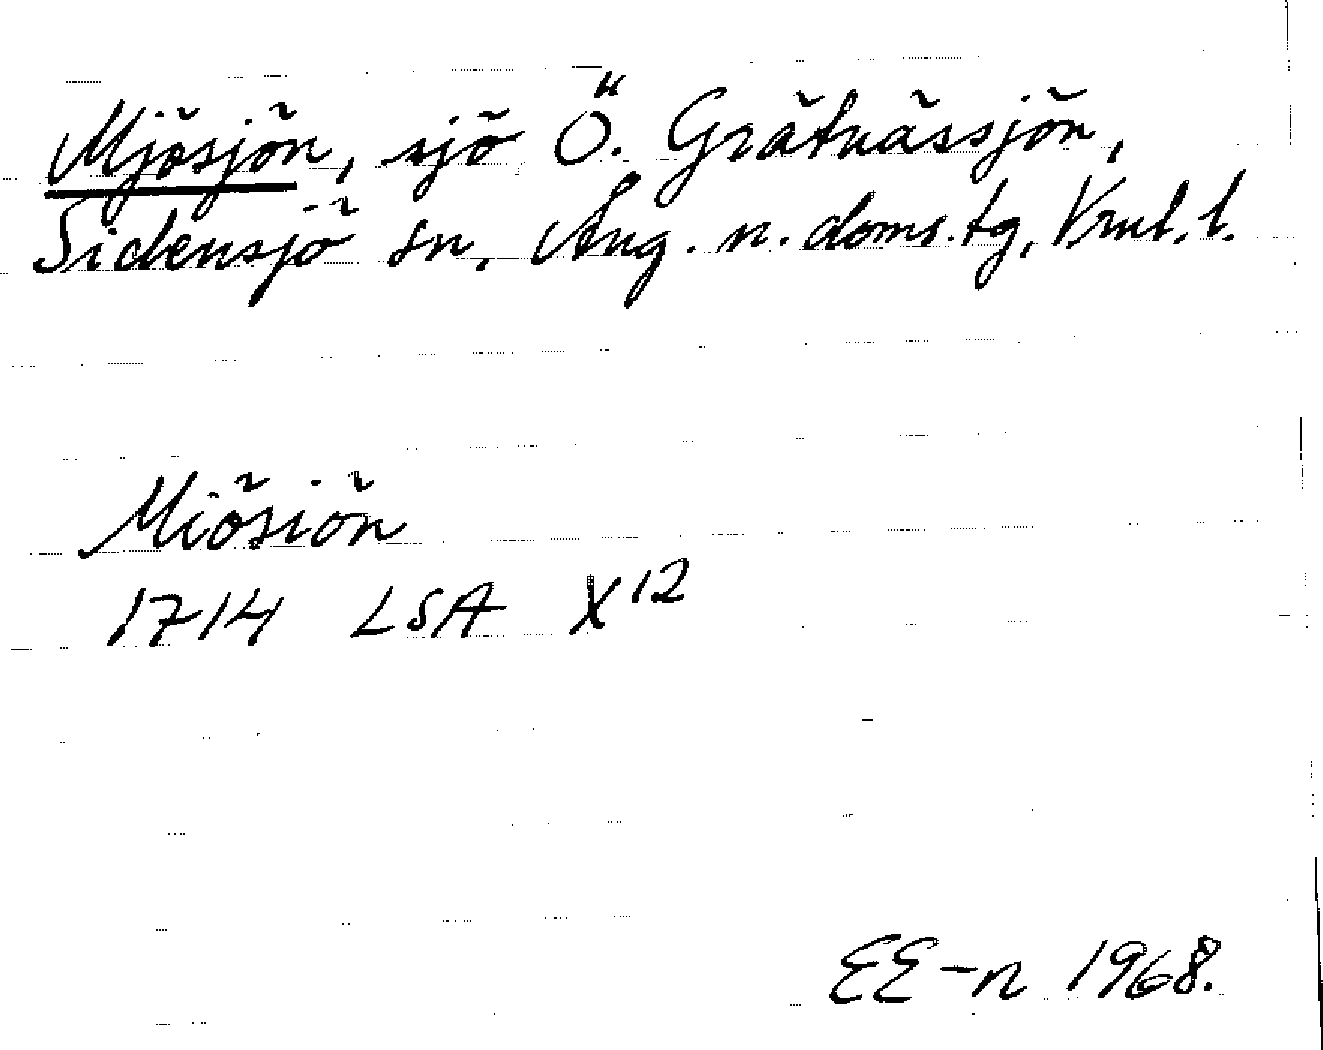 Mjösjön, sjö Ö. Grätnässjön,
Sidensjö sn, Ång. n. doms.tg, Vrnl.l.
Miösiön
1714 LSA X12
EE-n 1968.